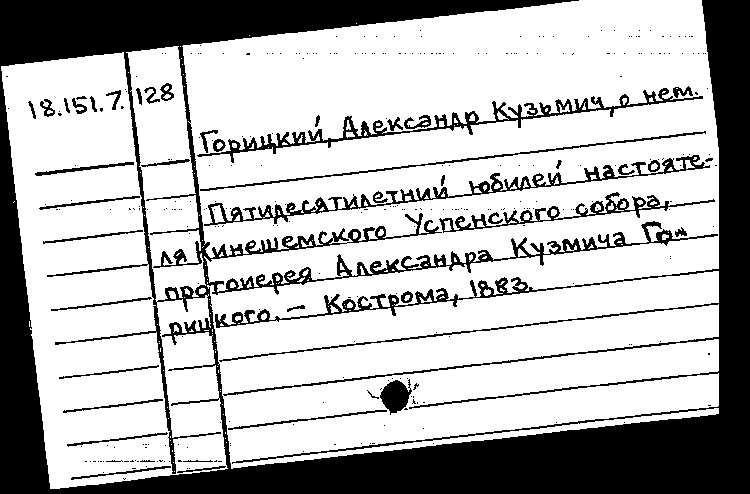 18.151.7. 128
Горицкий, Александр Кузьмич, о нем.
Пятидесятилетний юбилей настояте-
ля Кинешемского Успенского собора,
протоиерея Александра Кузмича Го-
рицкого. — Кострома, 1883.